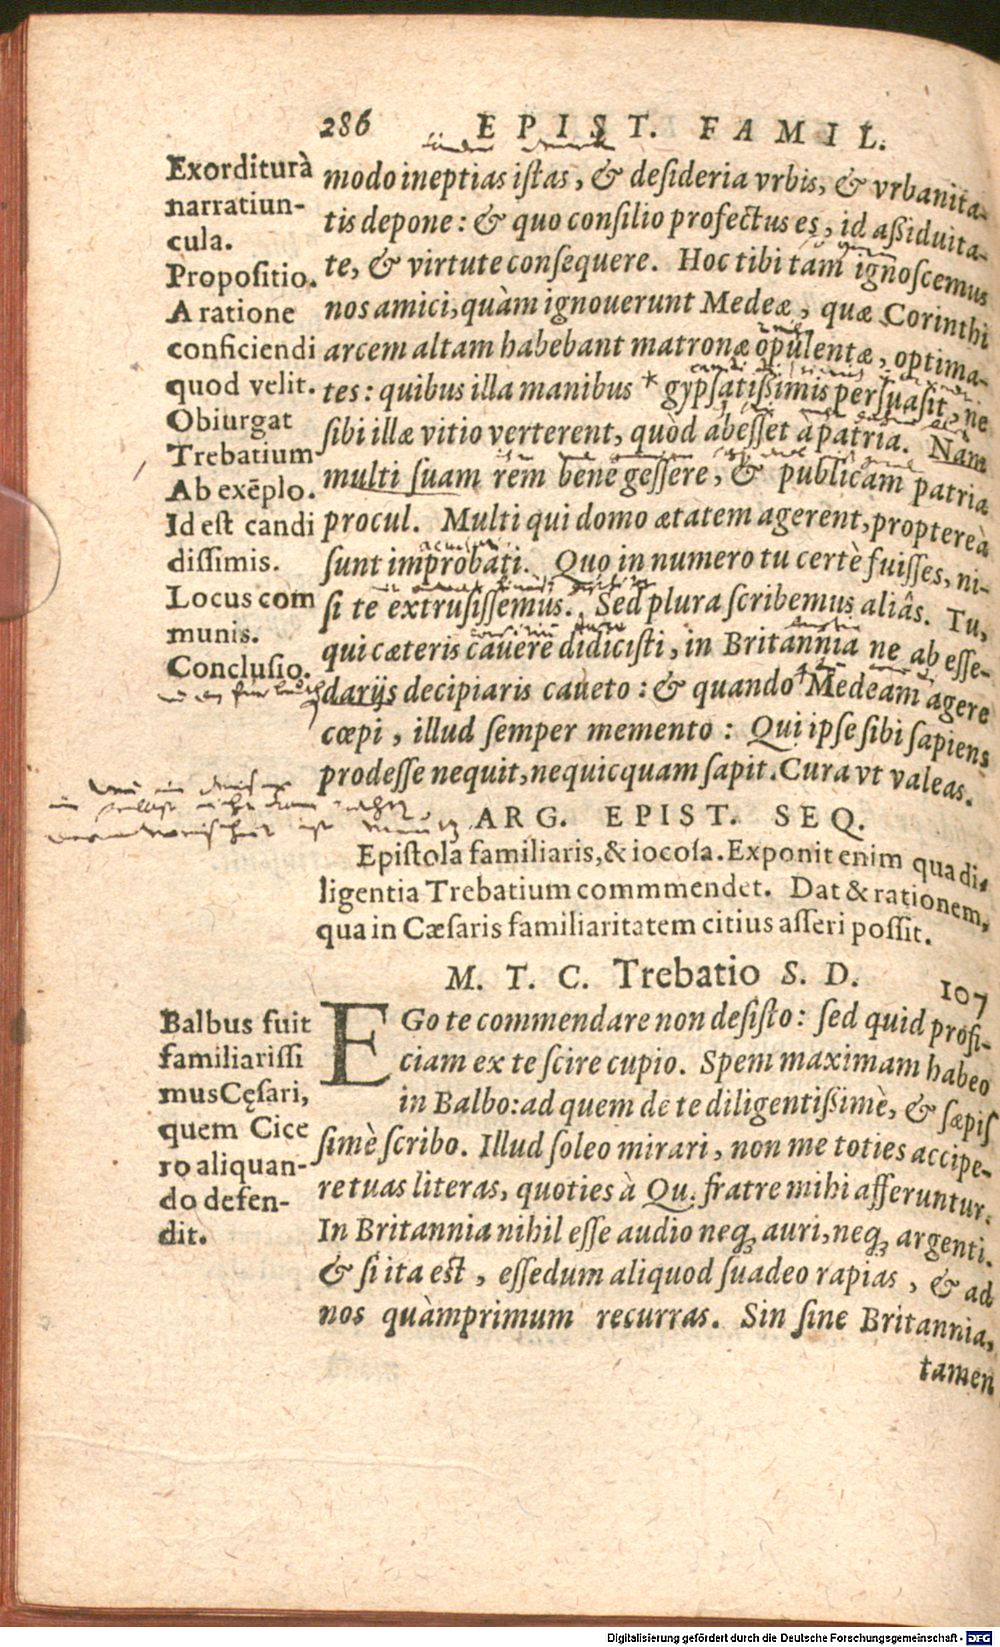 286 EPIST. FAMIL.
Exorditurà
narratiun-
cula.
Propositio.
A ratione
conficiendi
quod velit.
Obiurgat
Trebatium
Ab exēplo.
Id est candi
dissimis.
Locus com
munis.
Conclusio.
modo ineptias istas, & desideria vrbis, & vrbanita-
tis depone: & quo consilio profectus es, id aßiduita-
te, & virtute consequere. Hoc tibi tam ignoscemus
nos amici, quàm ignouerunt Medeæ, quæ Corinthi
arcem altam habebant matronæ opulentæ, optima-
tes: quibus illa manibus * gypsatißimis persuasit, ne
sibi illæ vitio verterent, quòd abesset à patria. Nam
multi suam rem bene gessere, & publicam patria
procul. Multi qui domo ætatem agerent, proptereà
sunt improbati. Quo in numero tu certè fuisses, ni-
si te extrusissemus. Sed plura scribemus aliâs. Tu,
qui cæteris cauere didicisti, in Britannia ne ab esse-
darijs decipiaris caueto: & quando Medeam agere
cœpi, illud semper memento: Qui ipse sibi sapiens
prodesse nequit, nequicquam sapit. Cura vt valeas.
ARG. EPIST. SEQ.
Epistola familiaris, & iocosa. Exponit enim qua di-
ligentia Trebatium commmendet. Dat & rationem,
qua in Cæsaris familiaritatem citius asseri possit.
M. T. C. Trebatio S. D. 107
Balbus fuit
familiarissi
mus Cęsari,
quem Cice
ro aliquan-
do defen-
dit.
EGo te commendare non desisto: sed quid profi-
ciam ex te scire cupio. Spem maximam habeo
in Balbo: ad quem de te diligentißimè, & sæpis
simè scribo. Illud soleo mirari, non me toties accipe-
re tuas literas, quoties à Qu. fratre mihi afferuntur.
In Britannia nihil esse audio neq; auri, neq; argenti.
& si ita est, essedum aliquod suadeo rapias, & ad
nos quàmprimum recurras. Sin sine Britannia,
tamen
Digitalisierung gefördert durch die Deutsche Forschungsgemeinschaft - DFG